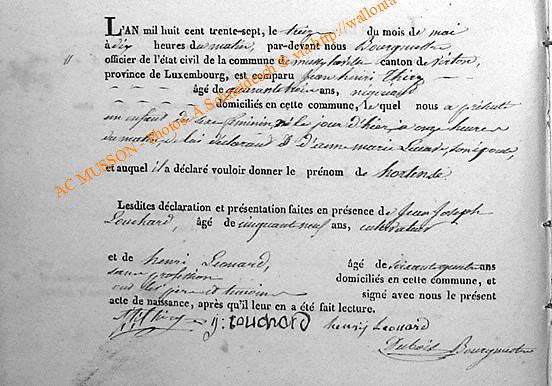 L'AN mil huit cent trente-sept, le treize du mois de mai
à dix heures du matin, par-devant nous Bourgmestre
officier de l'état civil de la commune de mussy la ville canton de virton,
province de Luxembourg, est comparu jean henri thiry
âgé de quarante trois ans, négociant
domiciliés en cette commune, lequel nous a présenté
un enfant de sexe féminin, né le jour d'hier, à onze heures
du matin, de lui déclarant & d'anne marie son épouse,
et auquel il a déclaré vouloir donner le prénom de hortense.
Lesdites déclaration et présentation faites en présence de Jean Joseph
Louchard, âgé de cinquante neuf ans, cultivateur
et de henri Léonard, âgé de soixante quatre ans
sans profession domiciliés en cette commune, et
ont les père et témoins signé avec nous le présent
acte de naissance, après qu'il leur en a été fait lecture.
j: Louchard henry Léonard
Dubois Bourgmestre
AC MUSSON - Photos: A Schmidtbach @ via http://wallonia